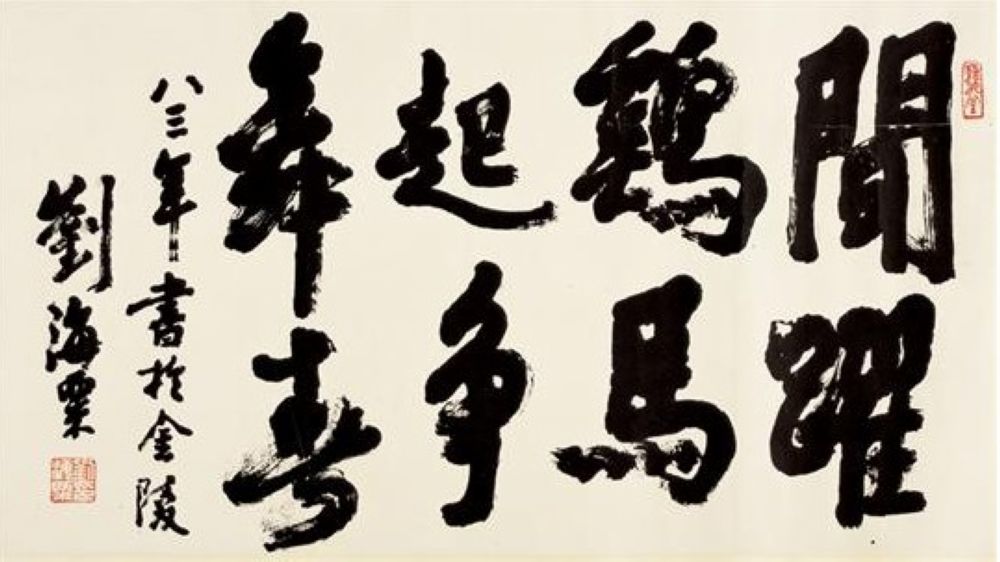 聞鷄起舞
躍馬争春
八三年書於金陵
劉海粟